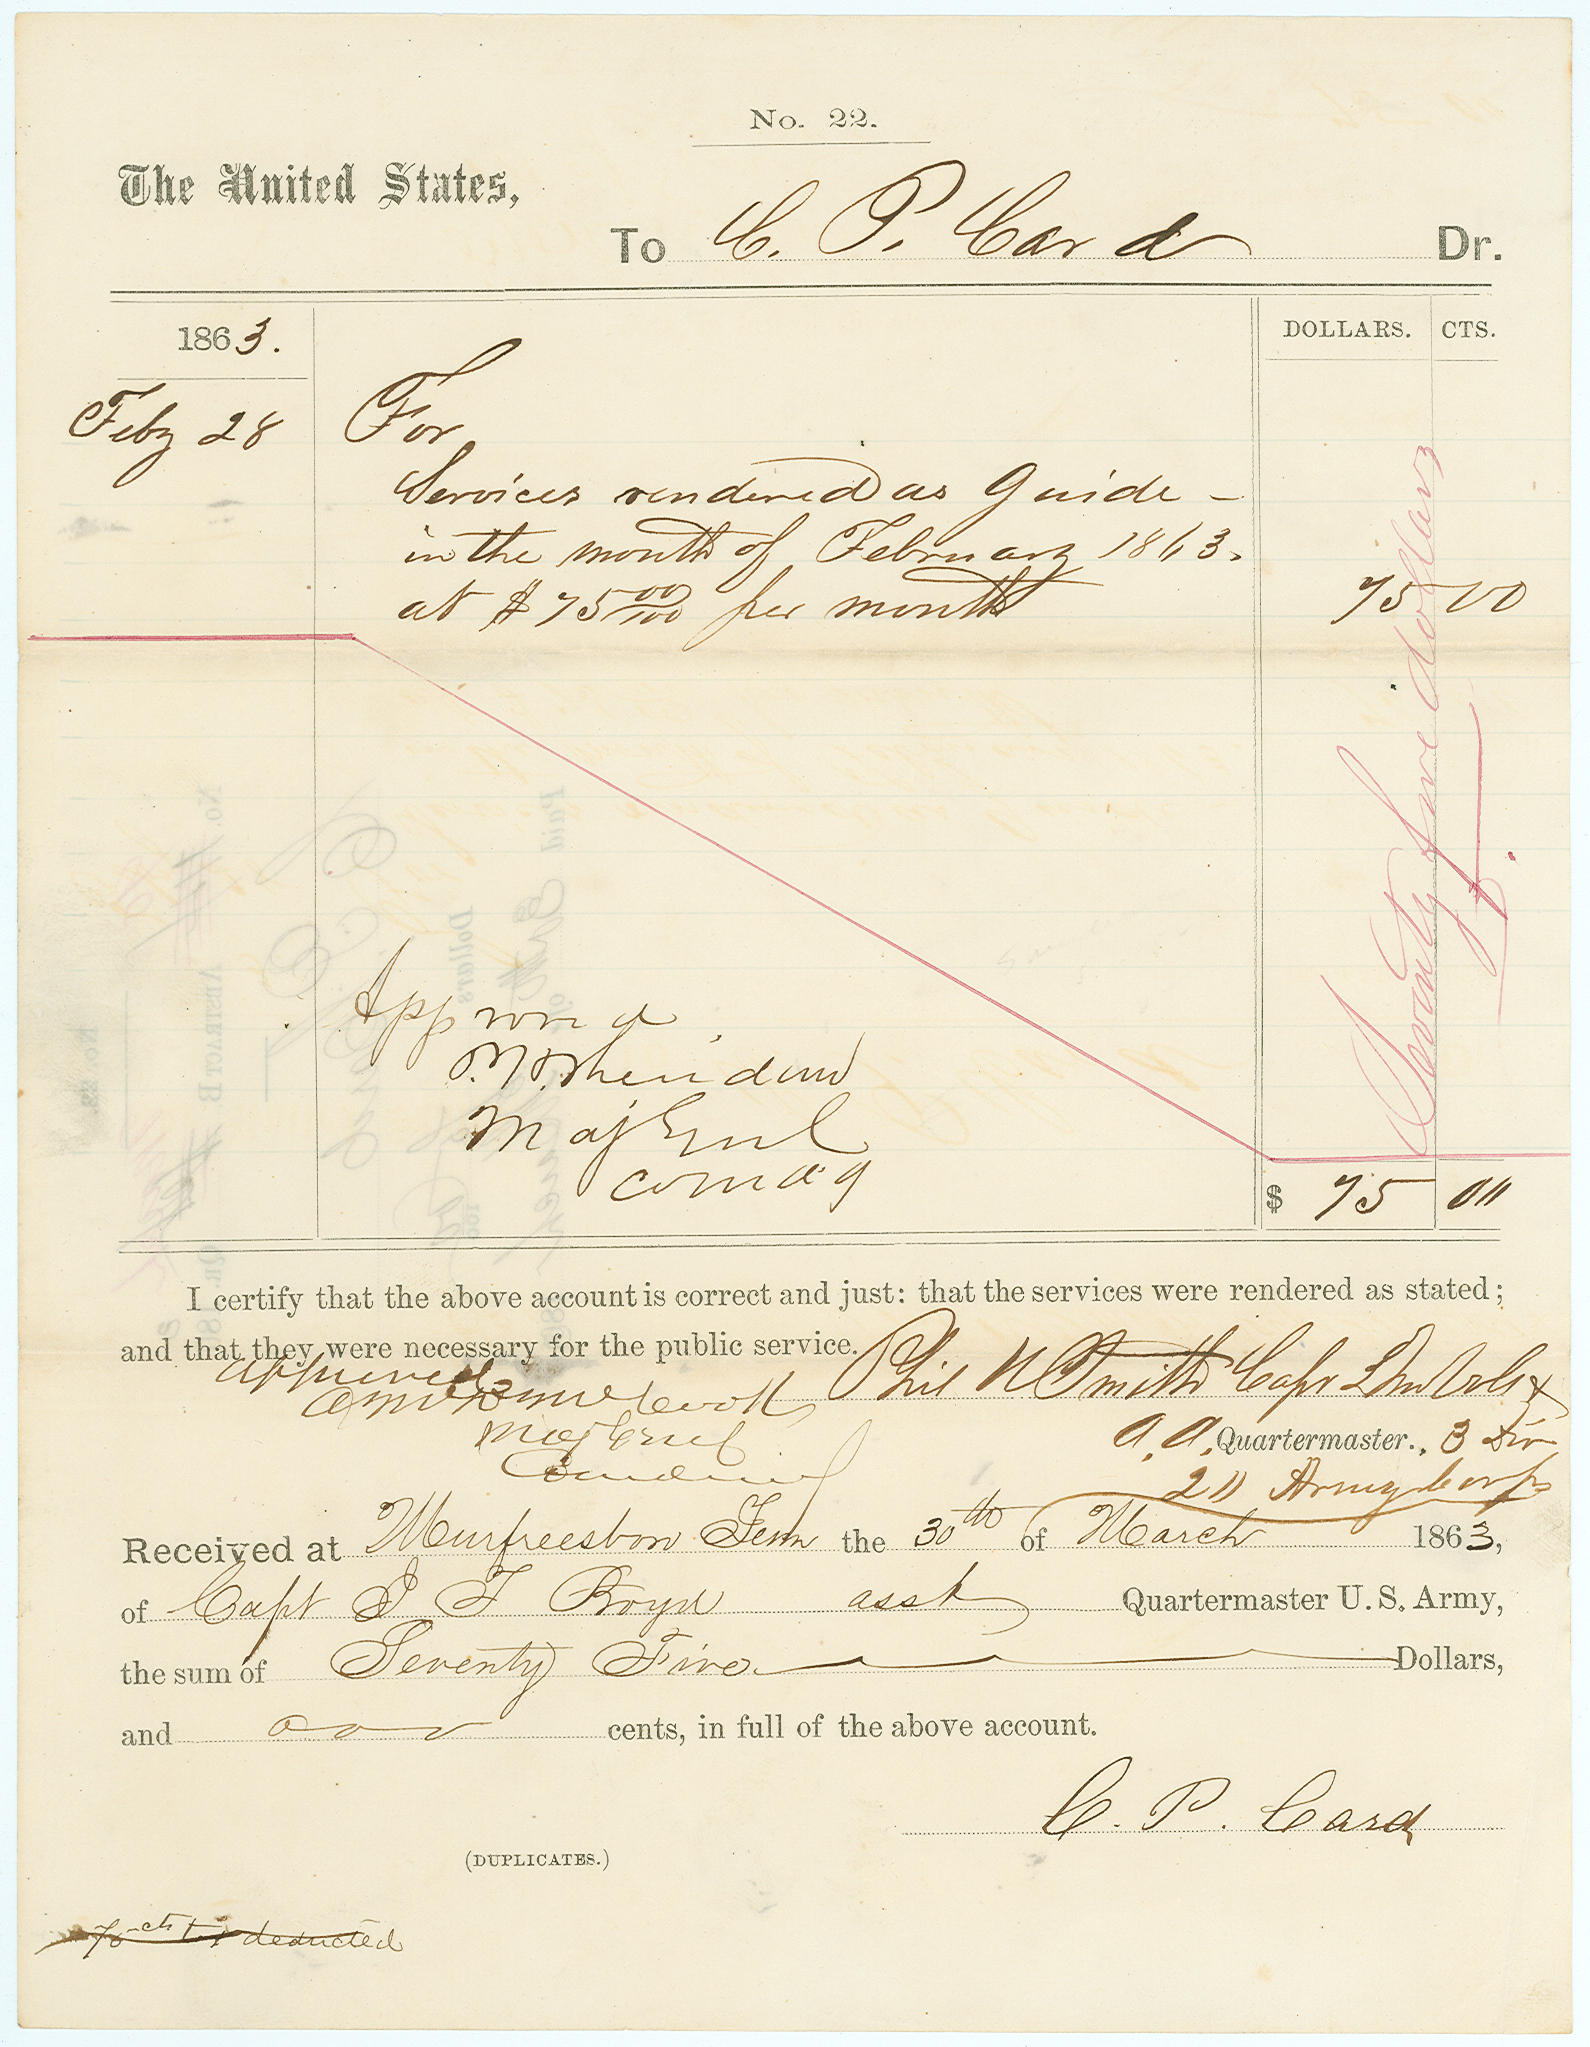 No. 22.
The United States,
To C. P. Card Dr.
1863. DOLLARS. CTS.
Feby 28 For
Services rendered as Guide -
in the month of February 1863.
at $75 00/100 per month 75 00
Seventy five dollars
Approved
P. H. Sheridan
Maj Genl
Comdg
$ 75 00
I certify that the above account is correct and just: that the services were rendered as stated;
and that they were necessary for the public service. Phil N Smith Capt
approved
A McD McCook
Maj Genl
A. A. Quartermaster., 3 Div
20 Army Corps
Received at Murfreesboro Tenn the 30th of March 1863,
of Capt J F Boyd asst Quartermaster U. S. Army,
the sum of Seventy Five Dollars,
and cents, in full of the above account.
C. P. Card
(DUPLICATES.)
75 cts deducted